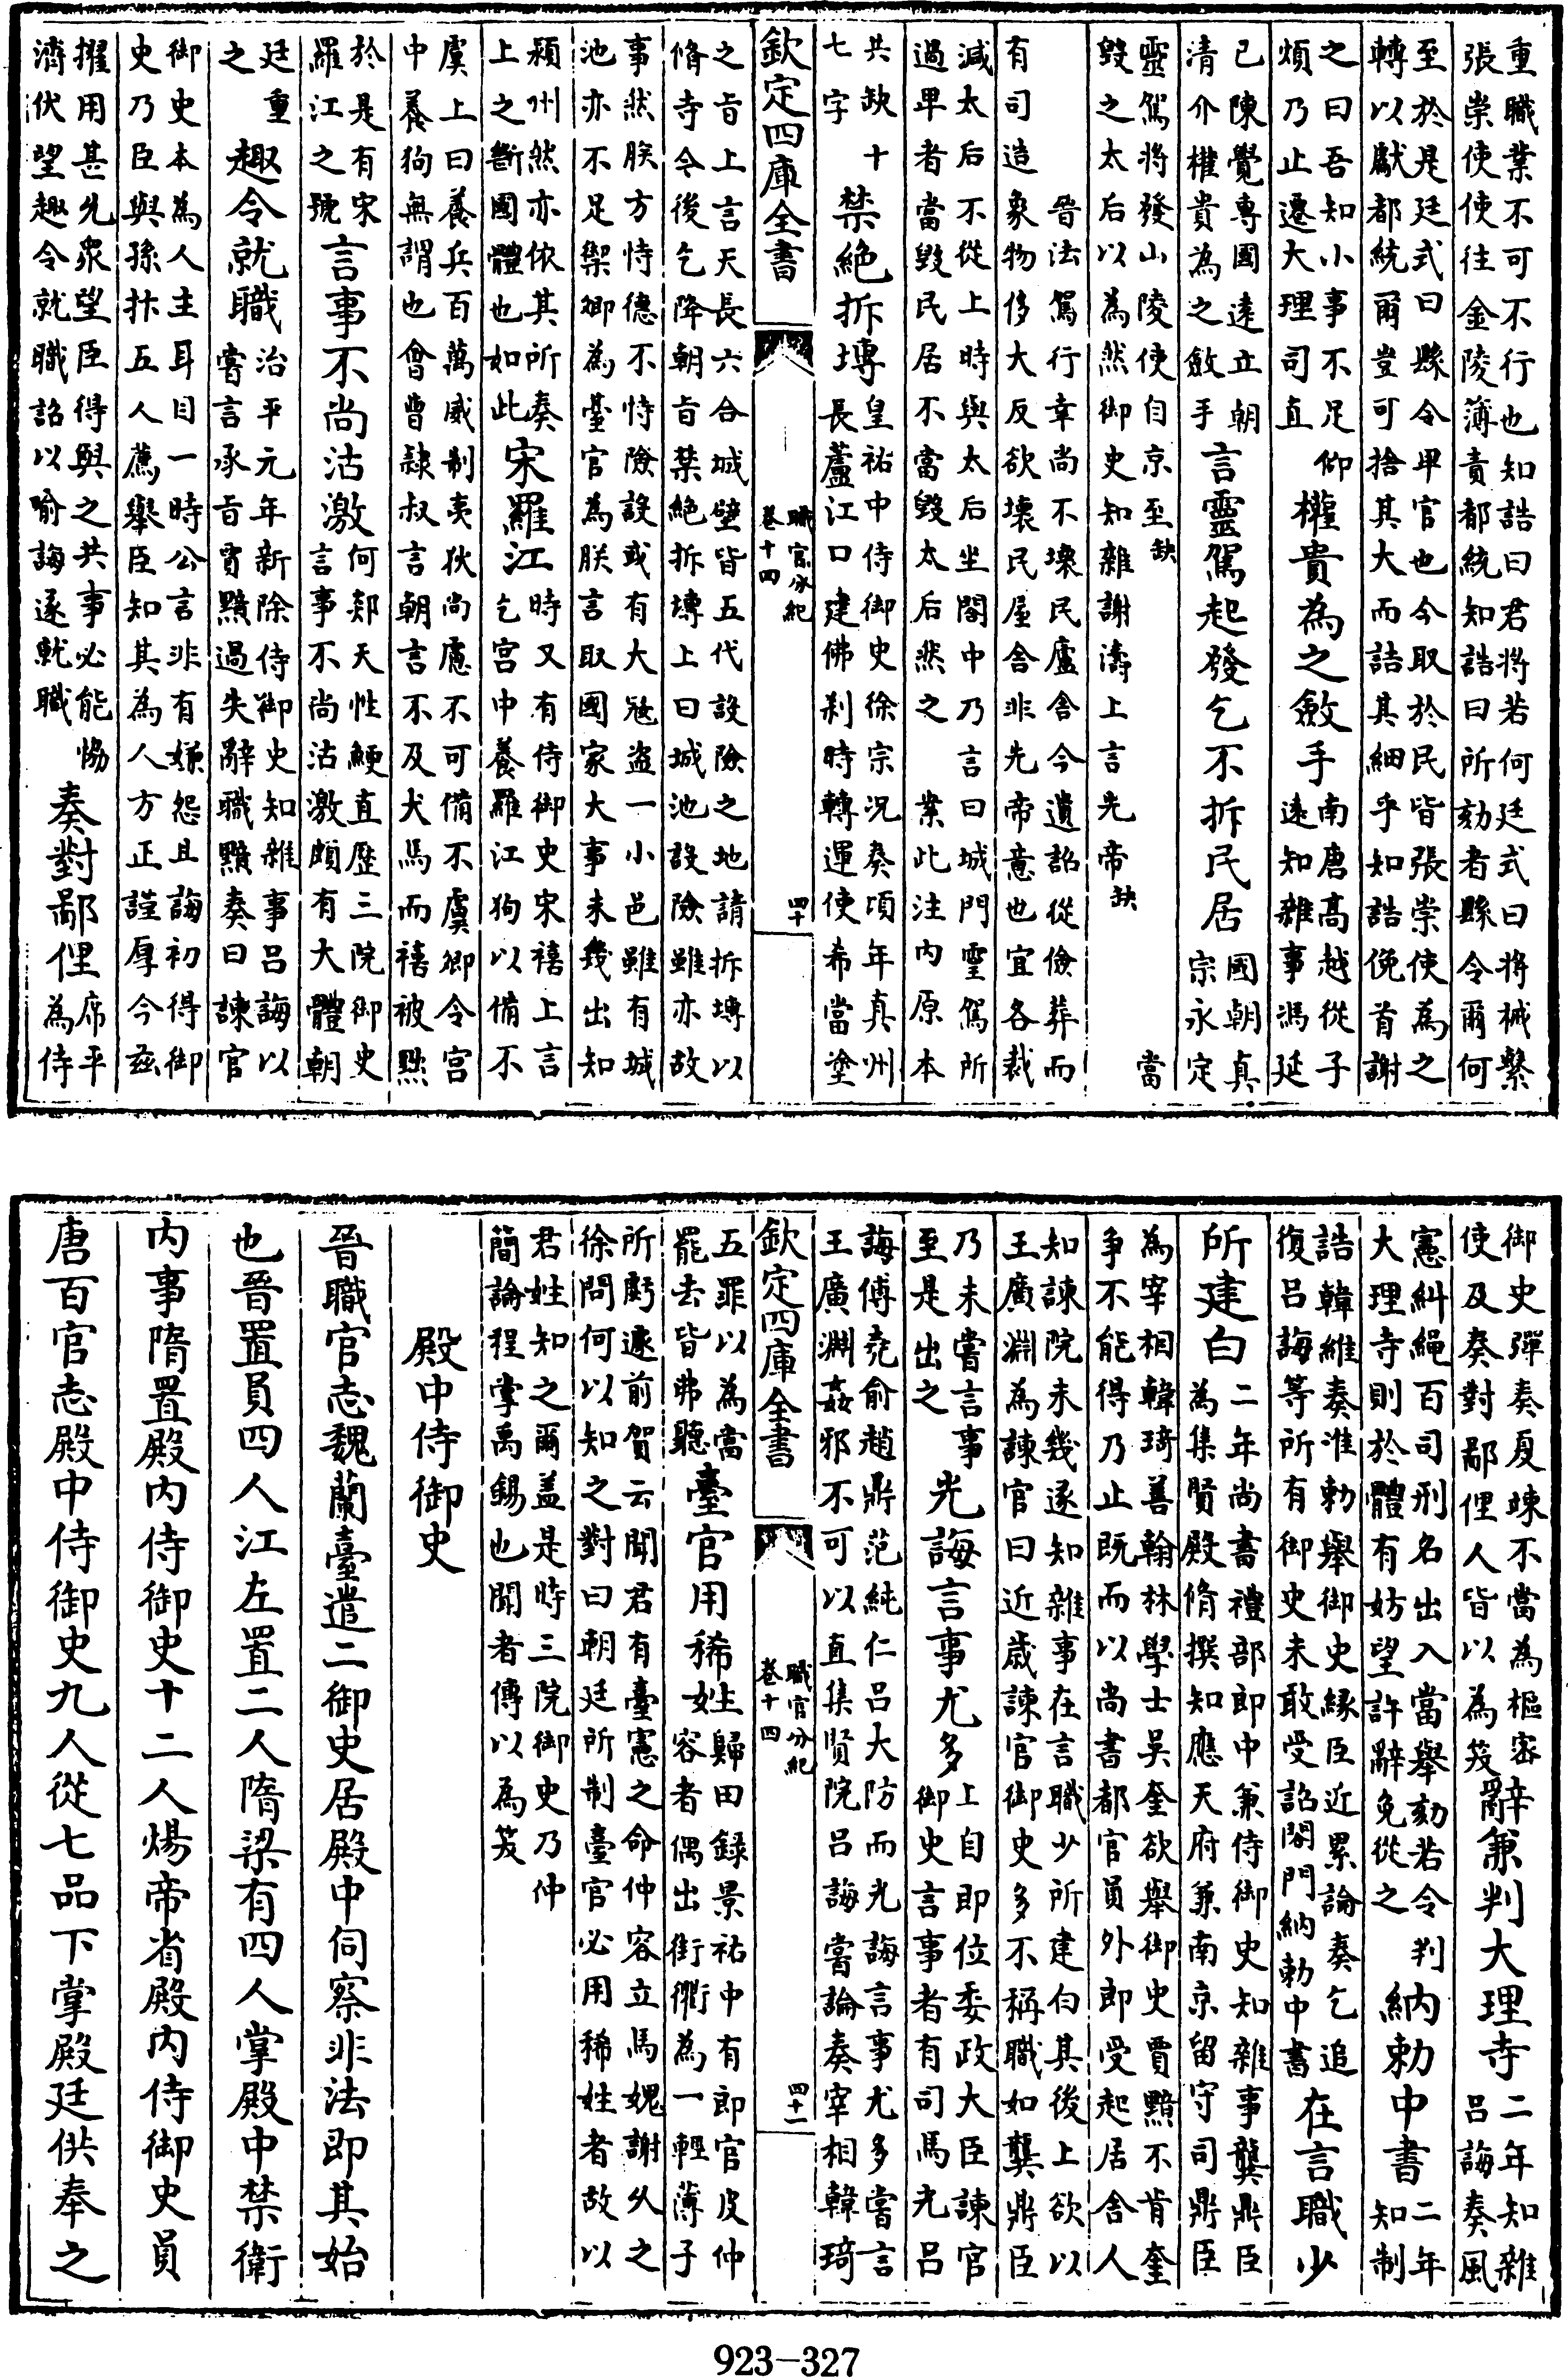 重職業不可不行也知誥曰君將若何廷式曰將械繫
張崇使使往金陵薄責都統知誥曰所劾者縣令爾何
至於是廷式曰縣令甲官也今取於民皆張崇使為之
轉以獻都統爾豈可捨其大而詰其細乎知誥俛首謝
之曰吾知小事不足仰
煩乃止遷大理司直
權貴為之斂手
南唐髙越從子
逺知雜事馮延
已陳覺專國逺立朝
清介權貴為之斂手
言靈駕起發乞不拆民居
國朝真
宗永定
靈駕將發山陵使自京至缺 當
毀之太后以為然御史知雜謝濤上言先帝缺
晉法駕行幸尚不壞民廬舍今遺詔從儉葬而
有司造象物侈大反欲壞民屋舍非先帝意也宜各裁
減太后不從上時與太后坐閤中乃言曰城門靈駕所
過卑者當毀民居不當毀太后悲之 案此注内原本
共缺十
七字
禁絶拆塼
皇祐中侍御史徐宗况奏頃年真州
長蘆江口建佛刹時轉運使希當塗
欽定四庫全書
職官分紀
卷十四
四十
之旨上言天長六合城壁皆五代設險之地請拆塼以
脩寺今後乞降朝旨禁絶拆塼上曰城池設險雖亦故
事然朕方恃德不恃險設或有大冦盗一小邑雖有城
池亦不足禦卿為臺官為朕言取國家大事未幾出知
潁州然亦依其所奏
上之斷國體也如此
宋羅江
時又有侍御史宋禧上言
乞宫中養羅江狗以備不
虞上曰養兵百萬威制夷狄尚慮不可備不虞卿令宫
中養狗無謂也㑹曾隷叔言朝言不及犬馬而禧被㸃
於是有宋
羅江之號
言事不尚沽激
何郯天性鯁直歴三院御史
言事不尚沽激頗有大體朝
廷重
之
趣令就職
治平元年新除侍御史知雜事吕誨以
嘗言承旨賈黯過失辭職黯奏曰諫官
御史本為人主耳目一時公言非有嫌怨且誨初得御
史乃臣與孫抃五人薦舉臣知其為人方正謹厚今兹
擢用甚允衆望臣得與之共事必能恊
濟伏望趣令就職詔以喻誨遂就職
奏對鄙俚
席平
為侍
御史彈奏夏竦不當為樞密
使及奏對鄙俚人皆以為笑
辭兼判大理寺
二年知雜
吕誨奏風
憲糾繩百司刑名出入當舉劾若令判
大理寺則於體有妨望許辭免從之
納勅中書
二年
知制
誥韓維奏准勅舉御史縁臣近累論奏乞追
復吕誨等所有御史未敢受詔閤門納勅中書
在言職少
所建白
二年尚書禮部郎中兼侍御史知雜事龔鼎臣
為集賢殿脩撰知應天府兼南京留守司鼎臣
為宰相韓琦善翰林學士吴奎欲舉御史賈黯不肯奎
争不能得乃止既而以尚書都官員外郎受起居舍人
知諫院未幾遂知雜事在言職少所建白其後上欲以
王廣淵為諫官曰近歳諫官御史多不稱職如龔鼎臣
乃未嘗言事
至是出之
光誨言事尤多
上自即位委政大臣諫官
御史言事者有司馬光吕
誨傅尭俞趙鼎范純仁吕大防而光誨言事尤多嘗言
王廣淵姦邪不可以直集賢院吕誨嘗論奏宰相韓琦
欽定四庫全書
職官分紀
卷十四
四十一
五罪以為當
罷去皆弗聽
臺官用稀姓
歸田録景祐中有郎官皮仲
容者偶出街衢為一輕薄子
所戲遽前賀云聞君有臺憲之命仲容立馬媿謝乆之
徐問何以知之對曰朝廷所制臺官必用稀姓者故以
君姓知之爾盖是時三院御史乃仲
簡論程掌禹錫也聞者傳以為笑
殿中侍御史
晉職官志魏蘭臺遣二御史居殿中伺察非法即其始
也晉置員四人江左置二人隋梁有四人掌殿中禁衛
内事隋置殿内侍御史十二人煬帝省殿内侍御史員
唐百官志殿中侍御史九人從七品下掌殿廷供奉之
923-327